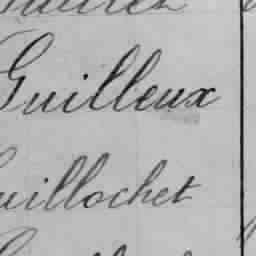 Guilleux
uillochet